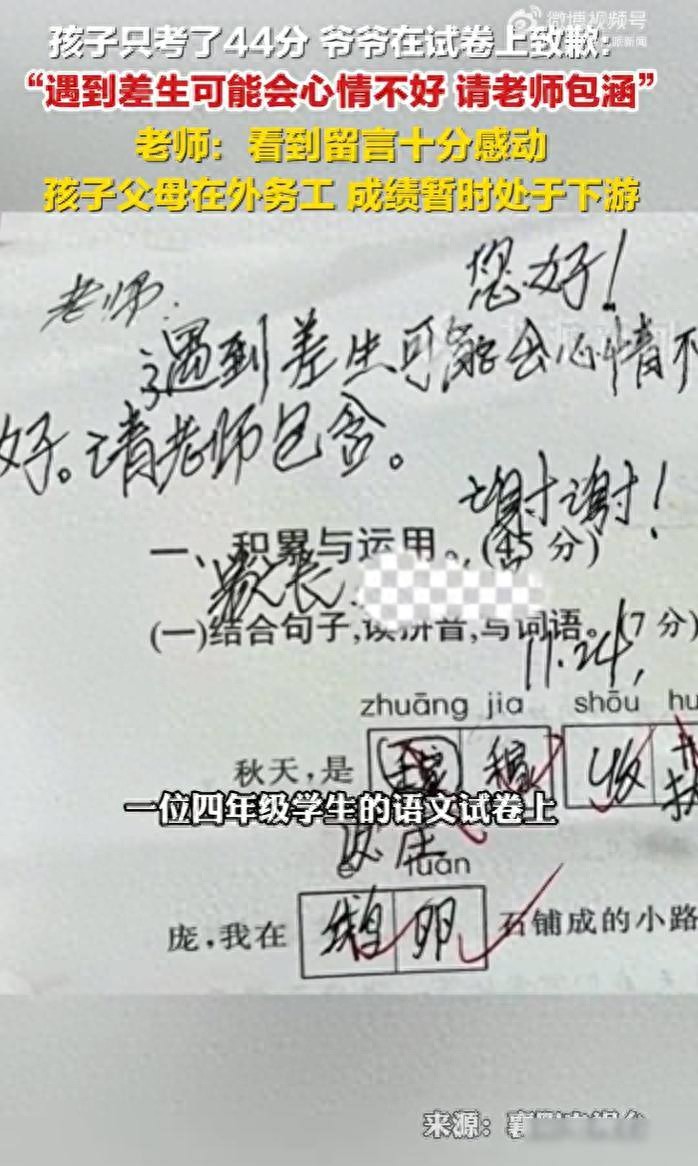 微博视频号
孩子只考了44分 爷爷在试卷上致歉:
“遇到差生可能会心情不好 请老师包涵”
老师：看到留言十分感动
孩子父母在外务工 成绩暂时处于下游
老师:
您好！
遇到差生可能会心情不
好。请老师包含。
谢谢！
一、积累与运用。(45分)
家长
(一)结合句子,读拼音,写词语。(7分)
11.24,
zhuāng jia shōu hu
秋天,是 稼 收
一位四年级学生的语文试卷上
庄
é luǎn
庞,我在 鹅 卵 石铺成的小路
来源：襄